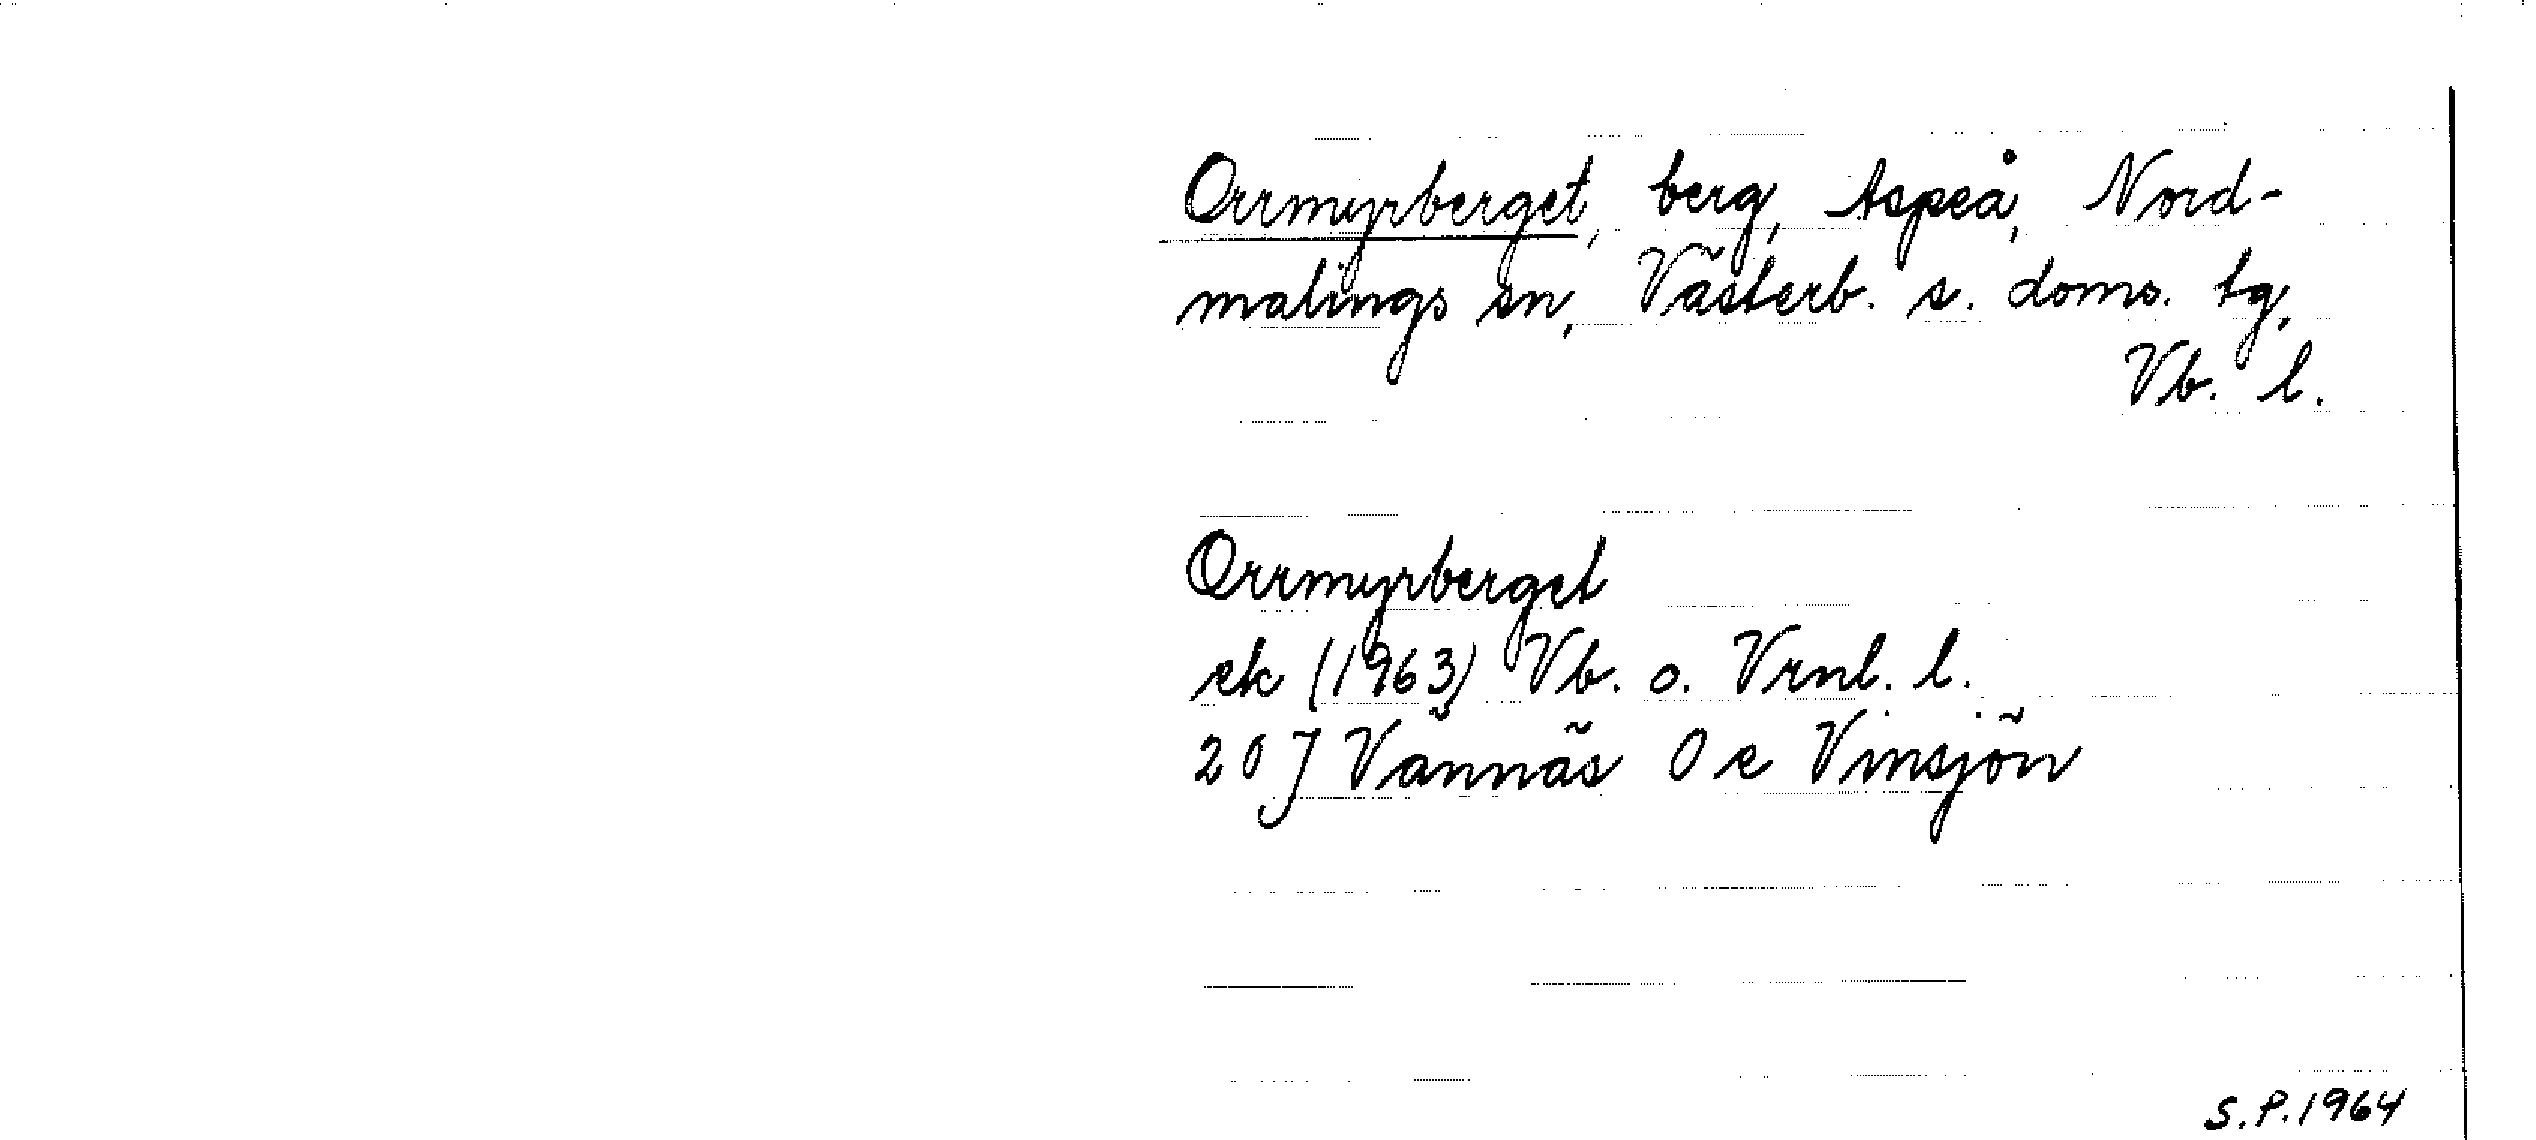 Orrmyrberget, berg, Aspeå, Nord-
malings sn, Västerb. s. doms. tg,
Vb. l.
Orrmyrberget
ek (1963) Vb. o. Vrnl. l.
20 J Vännäs 0 e Vinsjön
S.P. 1964